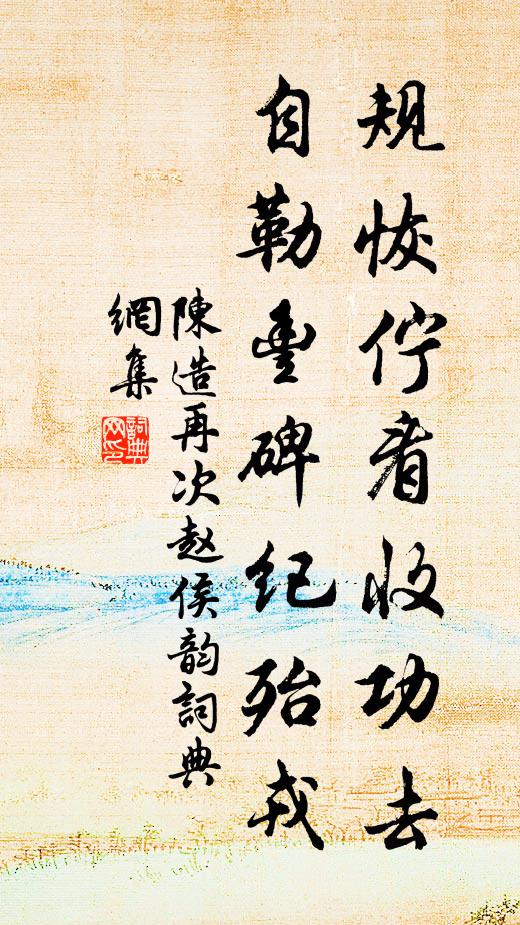 規恢佇看收功去
自勒豐碑纪殆戎
陳造再次赵侯韵詞典
網集
詞典
网印